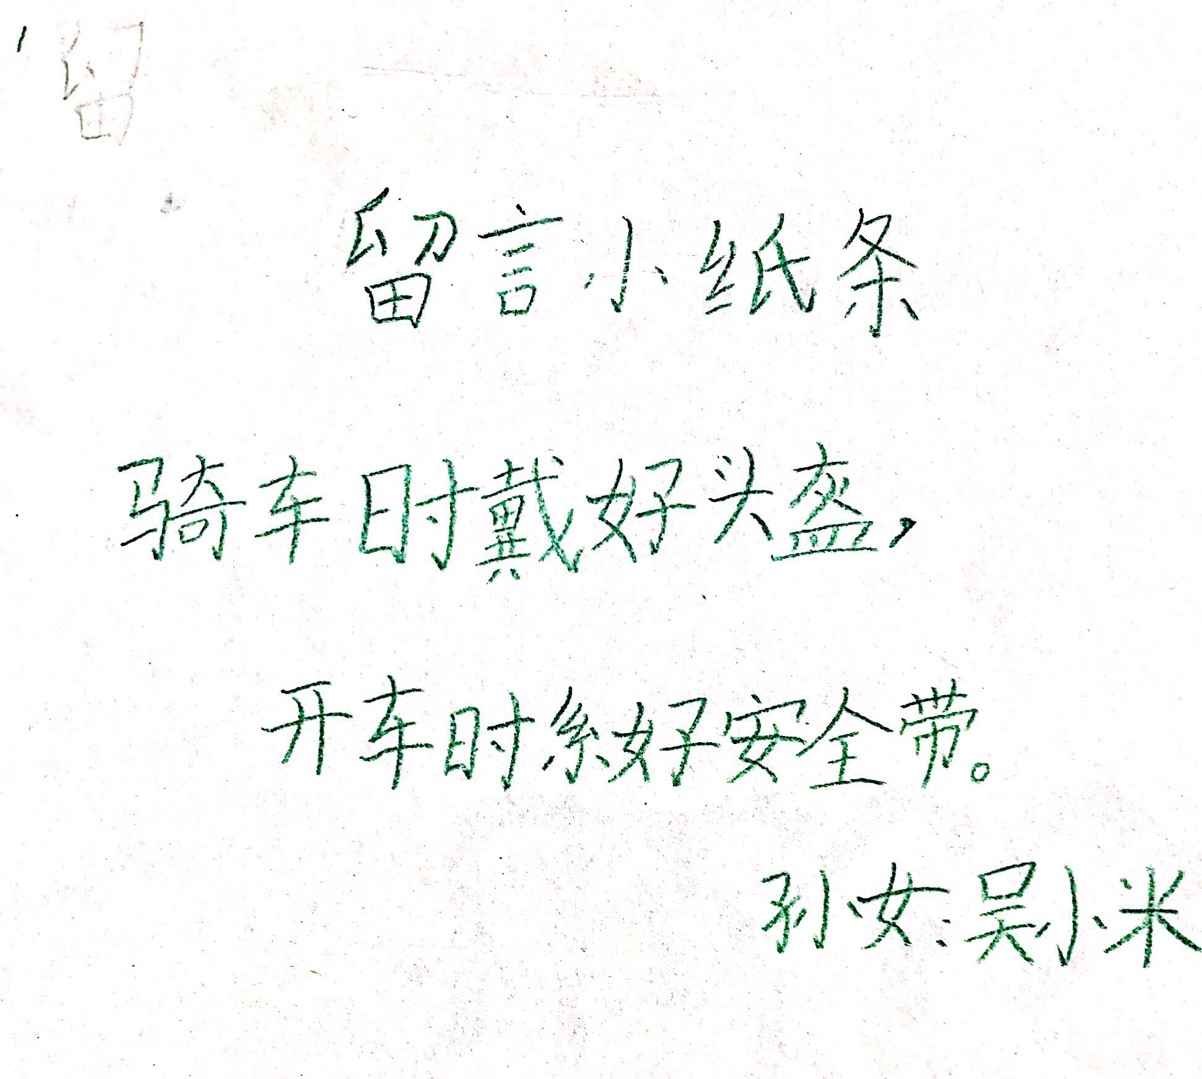 留
留言小纸条
骑车时戴好头盔,
开车时系好安全带。
孙女:吴小米